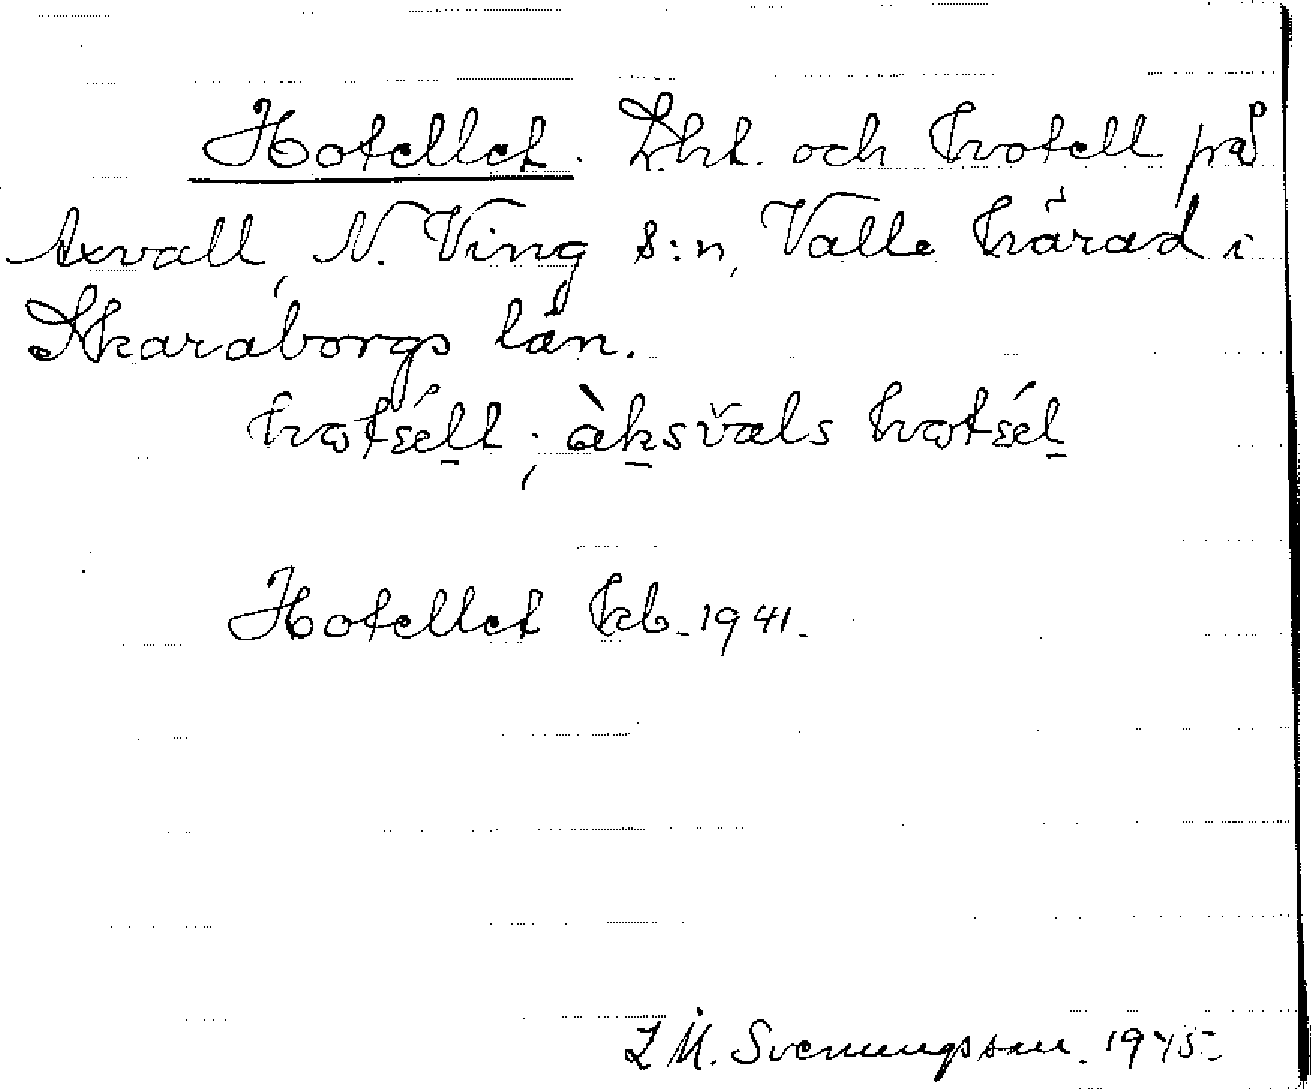 Hotellet. Lht. och hotell på
Axvall, N. Ving s:n, Valle härad i
Skaraborgs län.
àksvals
Hotellet kb. 1941.
L M. Svenungsson. 1945